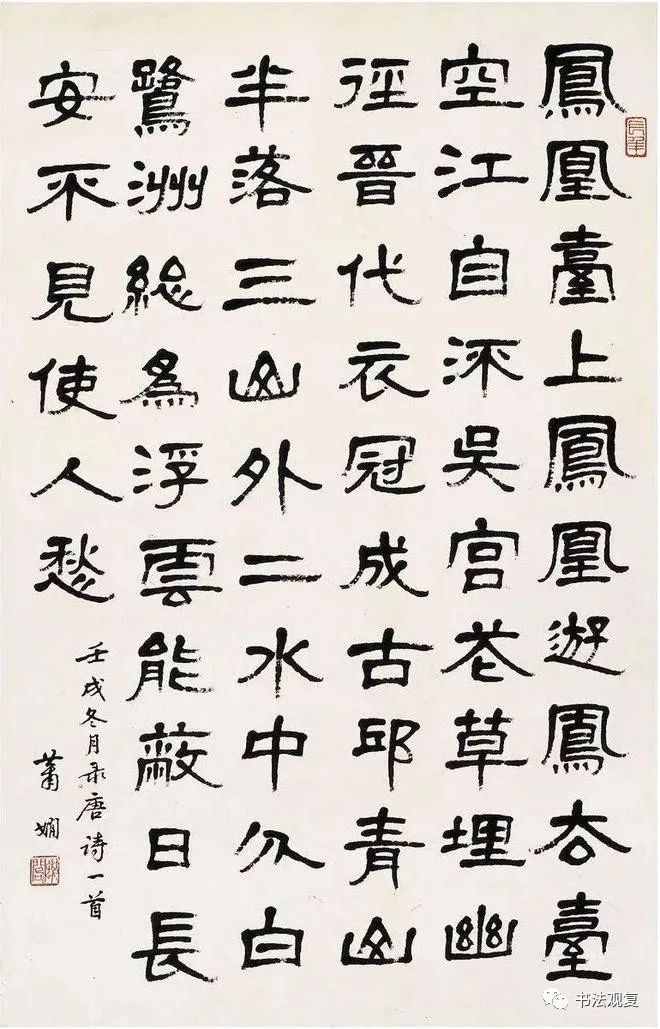 鳳凰臺上鳳凰遊鳳去臺
空江自流吳宮花草埋幽
徑晉代衣冠成古邱青山
半落三山外二水中分白
鷺洲總為浮雲能蔽日長
安不見使人愁
壬戌冬月录唐诗一首
蕭嫻
书法观复